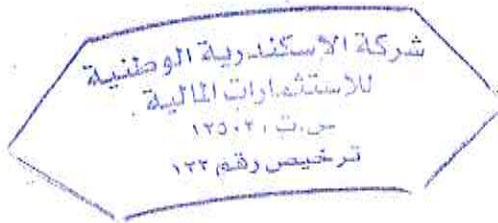 شركة الاسكندرية الوطنية
للاستثمارات المالية
س.ت ١٢٥٠٢٠
ترخيص رقم ١٢٢